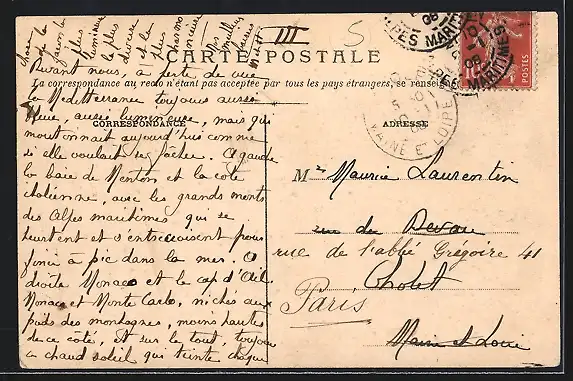 III
5
CARTE POSTALE
La correspondance au recto n'étant pas acceptée par tous les pays étrangers, se renseigner
CORRESPONDANCE
ADRESSE
Devant nous, à perte de vue
la Méditerranée toujours aussi
bleue, aussi lumineuse, mais qui
moutonnait aujourd'hui comme
si elle voulait se fâcher. A gauche
la baie de Menton et la côte
italienne, avec les grands monts
des Alpes maritimes qui se
heurtent et s'entrecroisent pour
finir à pic dans la mer. A
droite Monaco et le cap d'Ail
Monaco et Monte Carlo, nichés aux
pieds des montagnes, moins hautes
de ce côté, et sur le tout, toujours
ce chaud soleil qui teinte chaque
chose de la
façon la
plus
lumineuse
la plus
douce
et la
plus
harmo
nieuse
Nos
meilleurs
Mr Maurice Laurentin
rue du Devau
rue de l'abbé Grégoire 41
Cholet
Paris
Maine et Loire
MAINE ET LOIRE
ALPES MARITIMES
POSTES
10